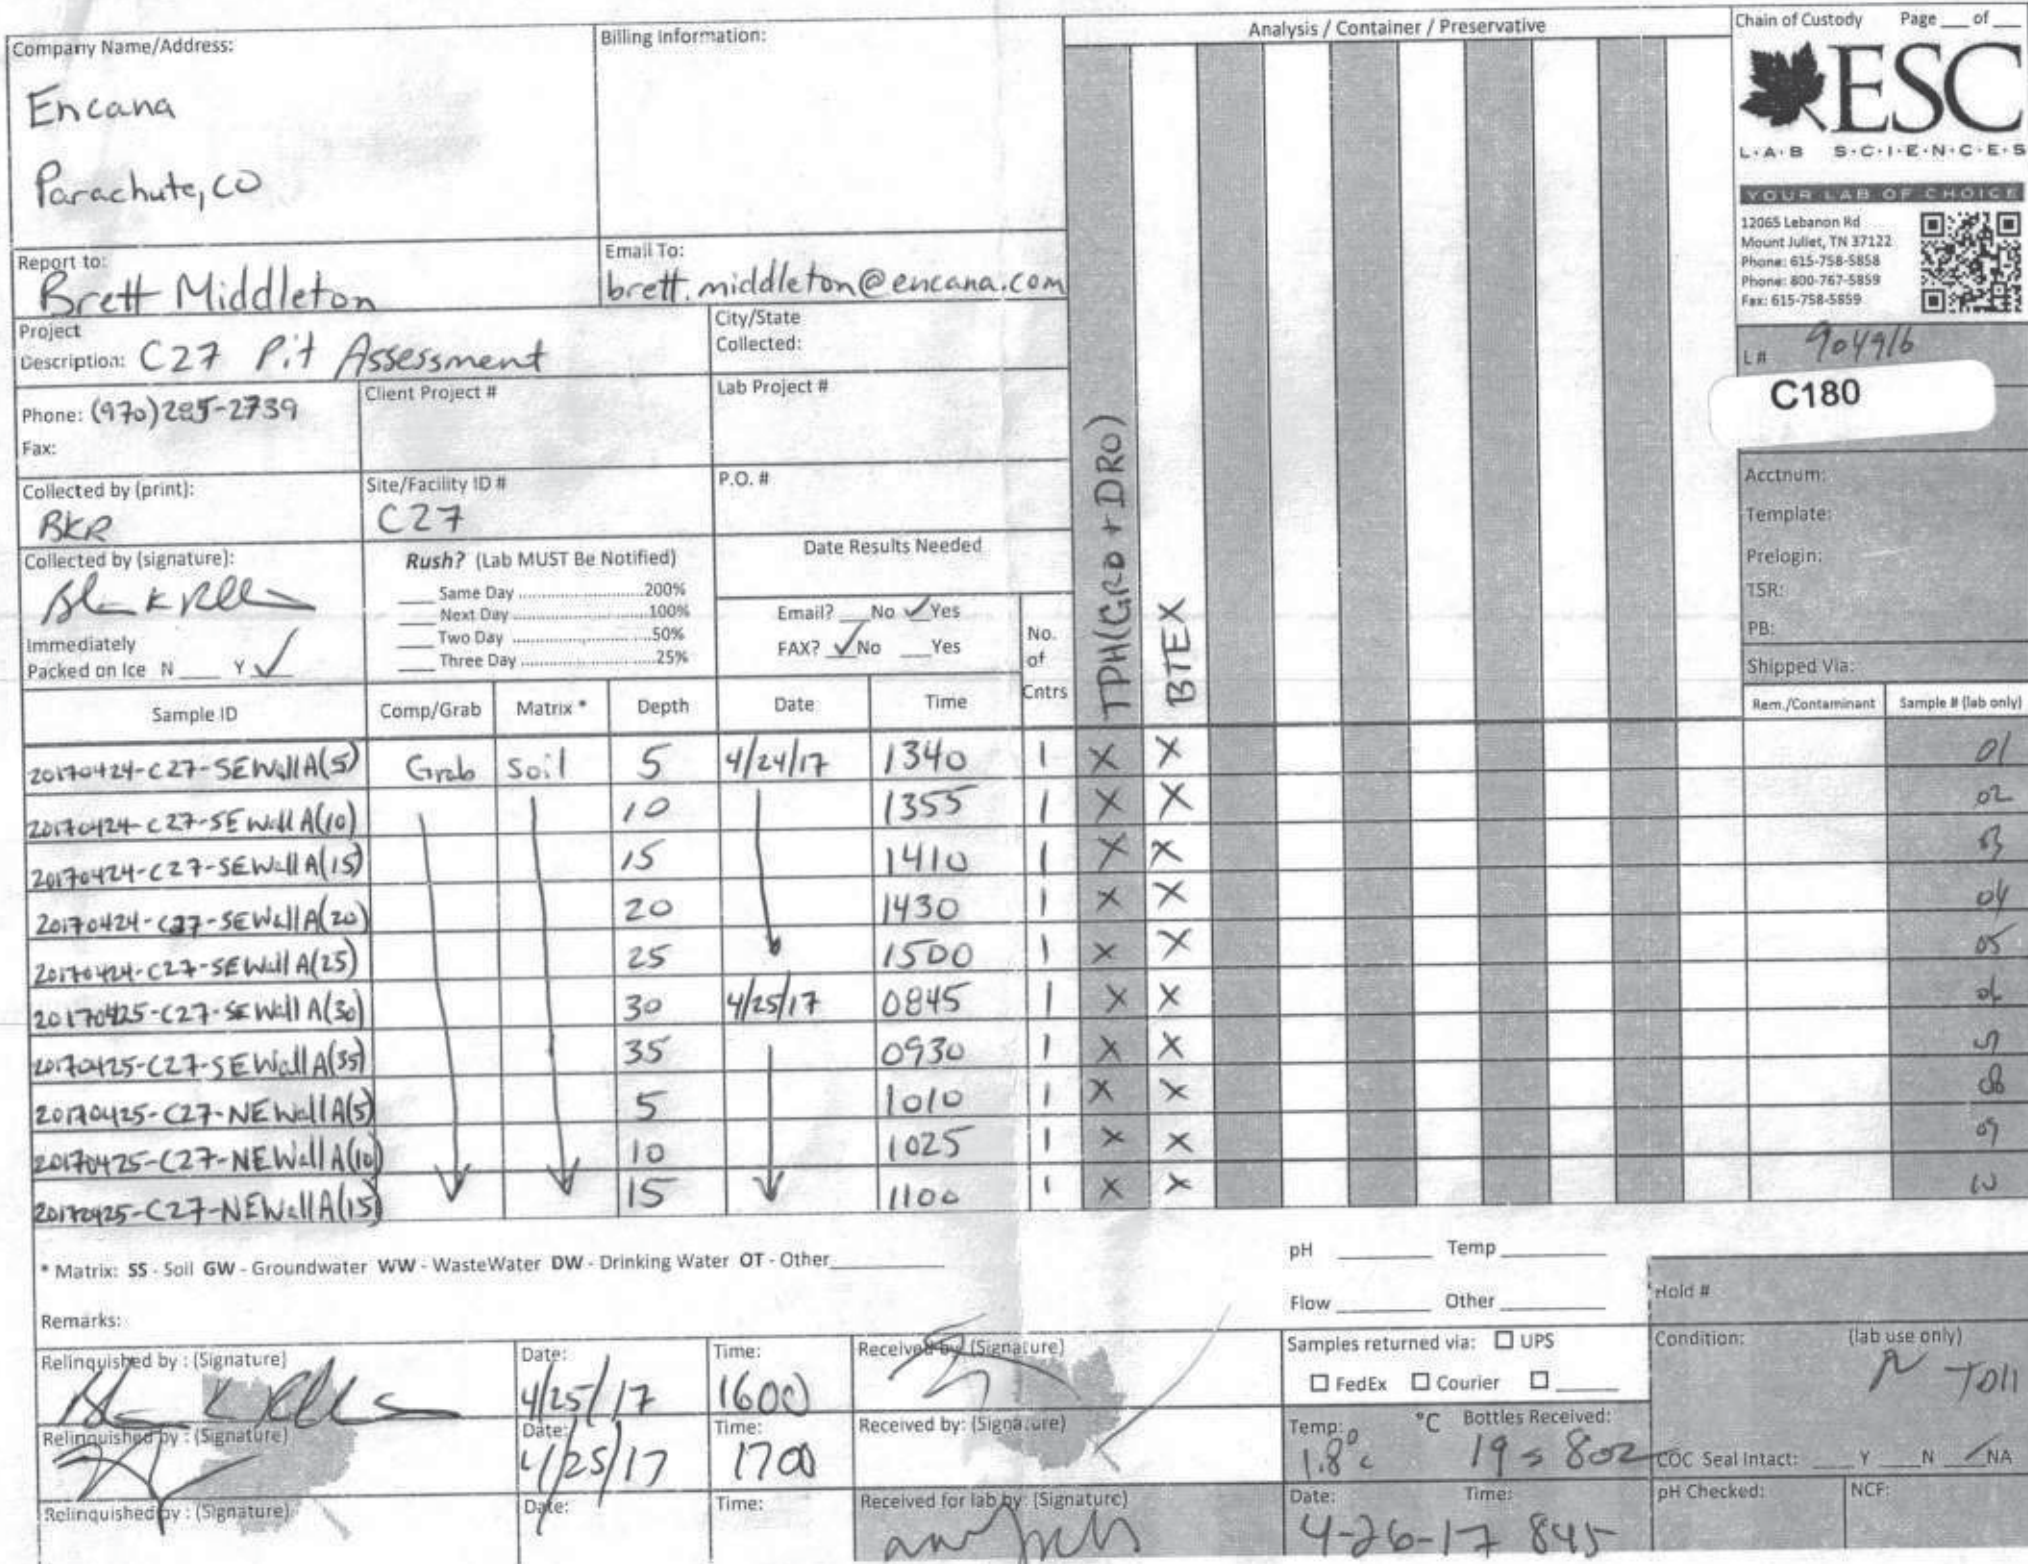 Chain of Custody Page ___ of ___
Analysis / Container / Preservative
Company Name/Address:
Encana
Parachute, CO
Billing Information:
ESC
L·A·B S·C·I·E·N·C·E·S
YOUR LAB OF CHOICE
12065 Lebanon Rd
Mount Juliet, TN 37122
Phone: 615-758-5858
Phone: 800-767-5859
Fax: 615-758-5859
Report to:
Brett Middleton
Email To:
brett.middleton@encana.com
Project
Description: C27 Pit Assessment
City/State
Collected:
L # 904916
C180
Phone: (970)285-2739
Fax:
Client Project #
Lab Project #
Collected by (print):
BKR
Site/Facility ID #
C27
P.O. #
Acctnum:
Template:
Prelogin:
TSR:
PB:
Shipped Via:
Collected by (signature):
Immediately
Packed on Ice N ___ Y ✓
Rush? (Lab MUST Be Notified)
___ Same Day ........................200%
___ Next Day ........................100%
___ Two Day ........................50%
___ Three Day ........................25%
Date Results Needed
Email? ___No ✓Yes
FAX? ✓No ___Yes
No.
of
Cntrs
TPH(GRO + DRO)
BTEX
Sample ID Comp/Grab Matrix * Depth Date Time Rem./Contaminant Sample # (lab only)
20170424-C27-SEWallA(5) Grab Soil 5 4/24/17 1340 1 X X 01
20170424-C27-SEWallA(10) 10 1355 1 X X 02
20170424-C27-SEWallA(15) 15 1410 1 X X 03
20170424-C27-SEWallA(20) 20 1430 1 X X 04
20170424-C27-SEWallA(25) 25 1500 1 X X 05
20170425-C27-SEWallA(30) 30 4/25/17 0845 1 X X 06
20170425-C27-SEWallA(35) 35 0930 1 X X 07
20170425-C27-NEWallA(5) 5 1010 1 X X 08
20170425-C27-NEWallA(10) 10 1025 1 X X 09
20170425-C27-NEWallA(15) 15 1100 1 X X 10
* Matrix: SS - Soil GW - Groundwater WW - WasteWater DW - Drinking Water OT - Other___
pH ___ Temp ___
Flow ___ Other ___
Remarks:
Hold #
Relinquished by : (Signature)
Date:
4/25/17
Time:
1600
Received by: (Signature)
Samples returned via: ☐ UPS
☐ FedEx ☐ Courier ☐ ___
Condition: (lab use only)
Relinquished by : (Signature)
Date:
4/25/17
Time:
1700
Received by: (Signature)
Temp: °C Bottles Received:
1.8°c 19 = 8oz
COC Seal Intact: ___Y ___N ✓NA
Relinquished by : (Signature)
Date:
Time:
Received for lab by: (Signature)
Date: Time:
4-26-17 845
pH Checked:
NCF: